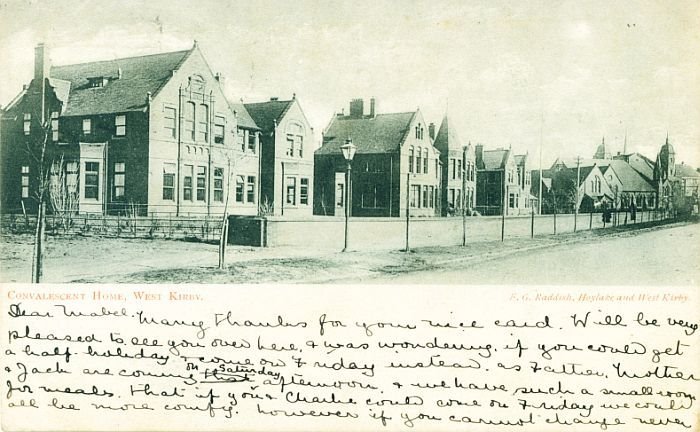 CONVALESCENT HOME, WEST KIRBY.
F. G. Raddish, Hoylake and West Kirby.
Dear Mabel. Many thanks for your nice card. Will be very
pleased to see you over here, & was wondering if you could get
a half-holiday & come on Friday instead. as Father, Mother
& Jack are coming on Saturday afternoon. & we have such a small room
for meals. that if you & Charlie could come on Friday we could
all be more comfy. however if you cannot change never